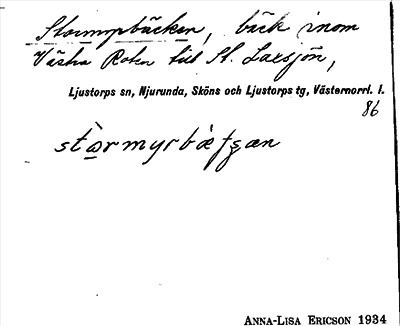 Stormyrbäcken, bäck inom
Västra Roten till St. Laxsjön,
Ljustorps sn, Njurunda, Sköns och Ljustorps tg, Västernorrl. l.
86
stòrmyrbæ̀tʂæn
ANNA-LISA ERICSON 1934